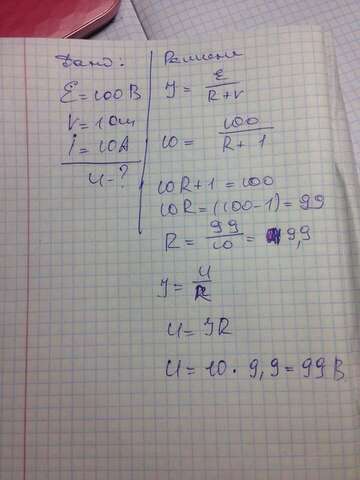 Дано:
Ɛ = 100 В
r = 1 Ом
i = 10А
U - ?
Решение
J = Ɛ / R + r
10 = 100 / R + 1
10R + 1 = 100
10R = (100 - 1) = 99
R = 99 / 10 = 9,9
J = U / R
U = JR
U = 10 · 9,9 = 99 В